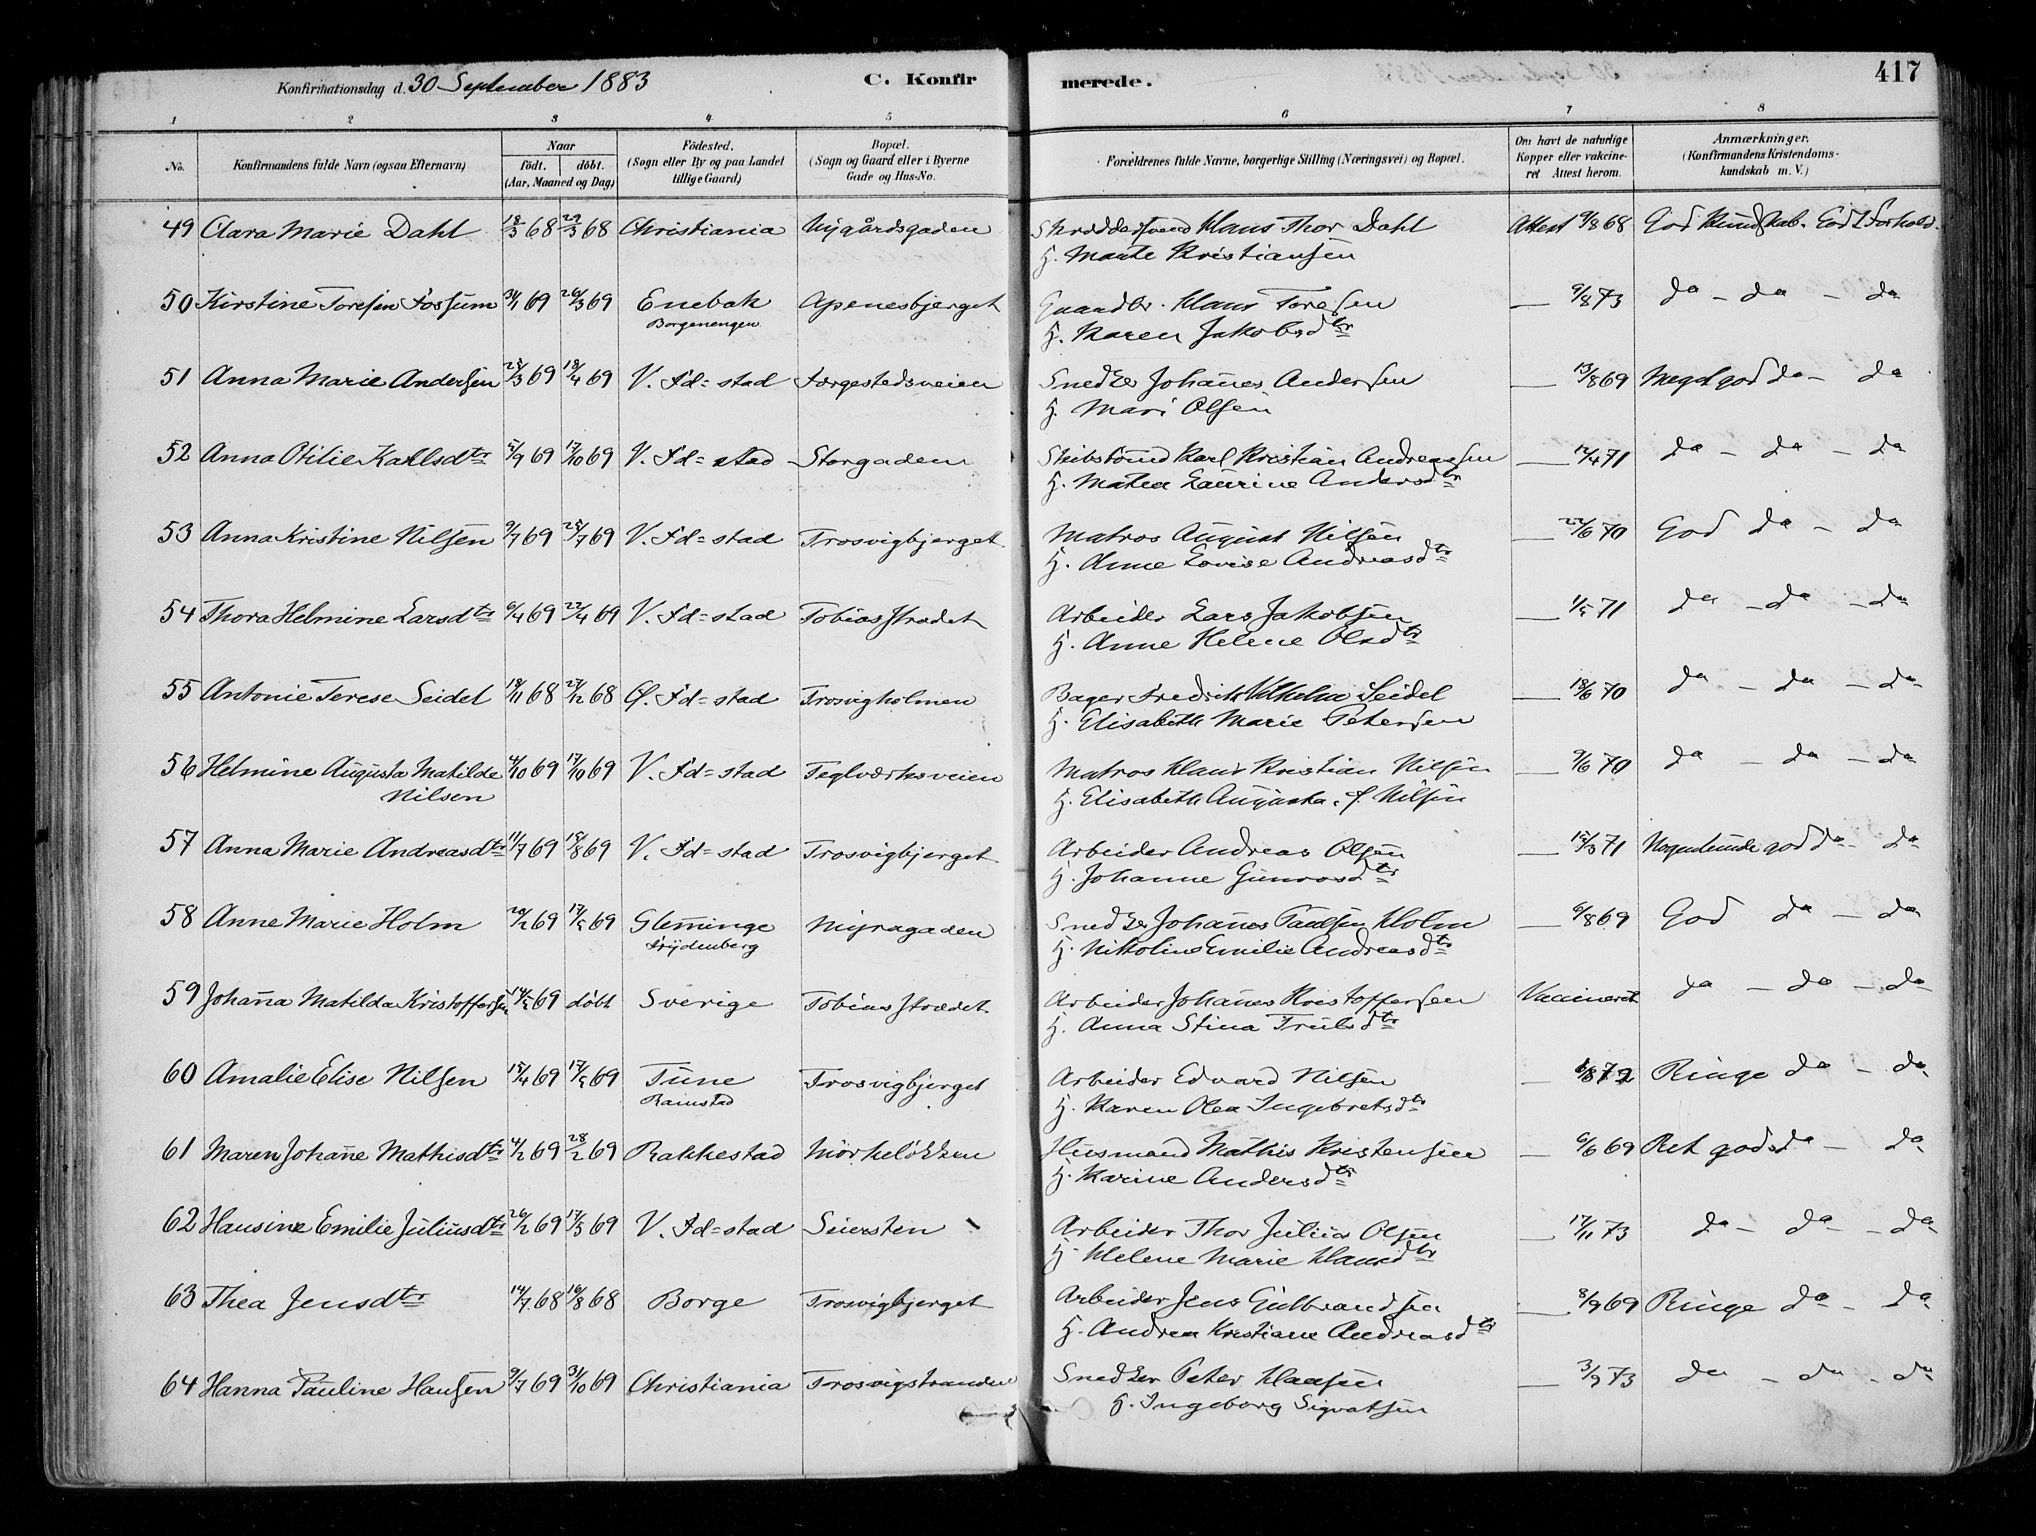 Konfirmationsdag d. 30 September 1883
C. Konfirmerede.
417
1 2 3 4 5 6 7 8
No.
Konfirmandens fulde Navn (ogsaa Efternavn)
Naar
födt. döbt.
(Aar, Maaned og Dag)
Födested.
(Sogn eller By og paa Landet
tillige Gaard)
Bopæl.
(Sogn og Gaard eller i Byerne
Gade og Hus-No.
Forældrenes fulde Navne, borgerlige Stilling (Næringsvei) og Bopæl.
Om havt de naturlige
Kopper eller vakcine-
ret Attest herom.
Anmærkninger.
(Konfirmandens Kristendoms-
kundskab m. V.)
49 Clara Marie Dahl 18/3 68 29/3 68 Christiania Nygårdsgaden Skræddersvend Klaus Thor Dahl Attest 9/8 68 God Kundskab. Godt Forhold.
H. Marte Kristiansen
50 Kirstine Toresen Fossum 31/1 69 26/3 69 Enebak Apenesbjerget Gaardbr. Klaus Toresen — 9/8 73 da – da – da
Borgenengen H. Karen Jakobsdtr
51 Anna Marie Andersen 25/3 69 18/4 69 V. Fd=stad Færgestedsveien Snedker Johanes Andersen — 13/8 69 Meget god da – da
H. Mari Olsen
52 Anna Otilie Karlsdtr 5/9 69 17/10 69 V. Fd=stad Storgaden Skibstømd Karl Kristian Andreassen — 12/4 71 da – da – da
H. Mathea Laurine Andersdtr
53 Anna Kristine Nilsen 9/7 69 25/7 69 V. Fd=stad Trosvigbjerget Matros August Nilsen — 22/6 70 God da – da
H. Anne Lovise Andreasdtr
54 Thora Helmine Larsdtr 6/4 69 22/4 69 V. Fd=stad Tobiasstrædet Arbeider Lars Jakobsen — 1/5 71 da – da – da
H. Anne Helene Olsdtr
55 Antonie Terese Seidel 18/11 68 27/12 68 Ø. Fd=stad Trosvigholmen Bager Fredrik Vilhelm Seidel — 18/6 70 da – da – da
H. Elisabeth Marie Petersen
56 Helmine Augusta Matilde 4/10 69 17/10 69 V. Fd=stad Teglværksveien Matros Klaus Kristian Nilsen — 9/6 70 da – da – da
Nilsen H. Elisabeth Augusta f. Nilsen
57 Anna Marie Andreasdtr 11/7 69 15/8 69 V. Fd=stad Trosvigbjerget Arbeider Andreas Olsen — 15/3 71 Nogenlunde god da – da
H. Johanne Gunnarsdtr
58 Anne Marie Holm 20/2 69 17/5 69 Glemminge Myragaden Snedker Johanes Paulsen Holm — 6/8 69 God da – da
Frydenberg H. Nikoline Emilie Andreasdtr
59 Johanna Matilda Kristoffersen 14/5 69 döbt Sverige Tobiasstrædet Arbeider Johanes Kristoffersen Vaccineret da – da – da
H. Anna Stina Trulsdtr
60 Amalie Elise Nilsen 15/4 69 17/5 69 Tune Trosvigbjerget Arbeider Edvard Nilsen — 6/8 72 Ringe da – da
Ramstad H. Karen Olea Ingebretsdtr
61 Maren Johanne Mathisdtr 4/2 69 28/2 69 Rakkestad Mörkeløkken Husmand Mathis Kristensen — 6/6 69 Ret god da – da
H. Karine Andersdtr
62 Hansine Emilie Juliusdtr 26/2 69 17/5 69 V. Fd=stad Seiersten Arbeider Thor Julius Olsen — 17/11 73 da – da – da
H. Helene Marie Hansdtr
63 Thea Jensdtr 14/7 68 16/8 68 Borge Trosvigbjerget Arbeider Jens Gulbrandsen — 8/9 69 Ringe da – da
H. Andrea Kristiane Andreasdtr
64 Hanna Pauline Hansen 9/7 69 31/10 69 Christiania Trosvigstranden Snedker Peter Hansen — 3/9 73 da – da – da
H. Ingeborg Sigvatsen